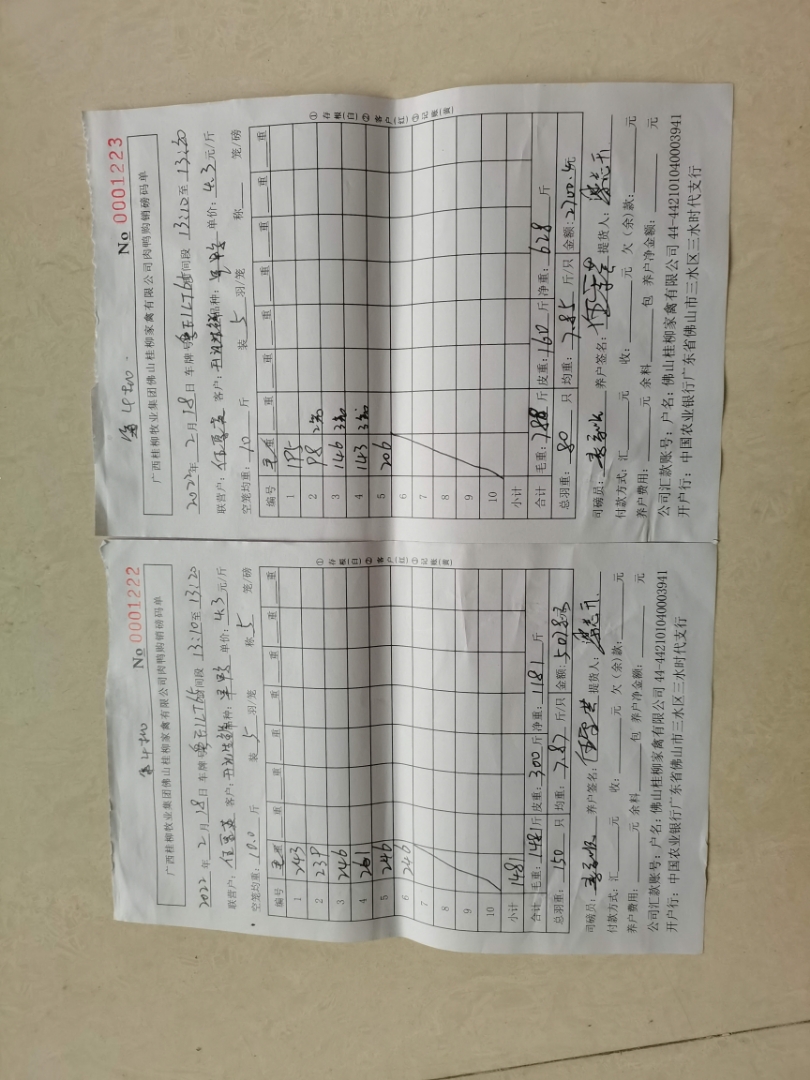 No 0001222
广西桂柳牧业集团佛山桂柳家禽有限公司肉鸭购销磅码单
2022 年 2 月 18 日 车牌号 时间段 13:10 至 13:20
联营户: 客户: 品种: 单价: 4.3 元/斤
空笼均重: 10.0 斤 装 5 羽/笼 称 5 笼/磅
编号 毛重 重 重 重 重 重
1 243
2 239
3 246
4 261
5 246
6 246
7
8
9
10
小计 1481
合计 毛重: 1481 斤 皮重: 300 斤 净重: 1181 斤
总羽重: 150 只 均重: 7.87 斤/只 金额: 5078元
司磅员: 养户签名: 提货人:
付款方式: 汇 元 收: 元 欠(余)款: 元
养户费用: 元 余料 包 养户净金额: 元
公司汇款账号: 户名: 佛山桂柳家禽有限公司 44-442101040003941
开户行: 中国农业银行广东省佛山市三水区三水时代支行
①存根(白)②客户(红)③记账(黄)
No 0001223
广西桂柳牧业集团佛山桂柳家禽有限公司肉鸭购销磅码单
2022 年 2 月 18 日 车牌号 时间段 13:10 至 13:20
联营户: 客户: 品种: 单价: 4.3 元/斤
空笼均重: 10 斤 装 5 羽/笼 称 笼/磅
编号 毛重 重 重 重 重 重
1 195
2 98 2笼
3 146 3笼
4 143 3笼
5 206
6
7
8
9
10
小计
合计 毛重: 788 斤 皮重: 160 斤 净重: 628 斤
总羽重: 80 只 均重: 7.85 斤/只 金额: 2700.元
司磅员: 养户签名: 提货人:
付款方式: 汇 元 收: 元 欠(余)款: 元
养户费用: 元 余料 包 养户净金额: 元
公司汇款账号: 户名: 佛山桂柳家禽有限公司 44-442101040003941
开户行: 中国农业银行广东省佛山市三水区三水时代支行
①存根(白)②客户(红)③记账(黄)